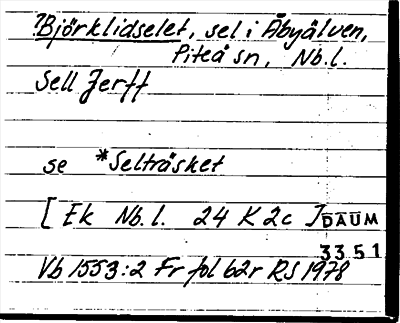 ?Björklidselet, sel i Åbyälven,
Piteå sn, Nb.l.
Sell Jerff
se *Selträsket
[Ek Nb.l. 24 K 2c ] DAUM
3351
Vb 1553:2 Fr fol 62r RS 1978